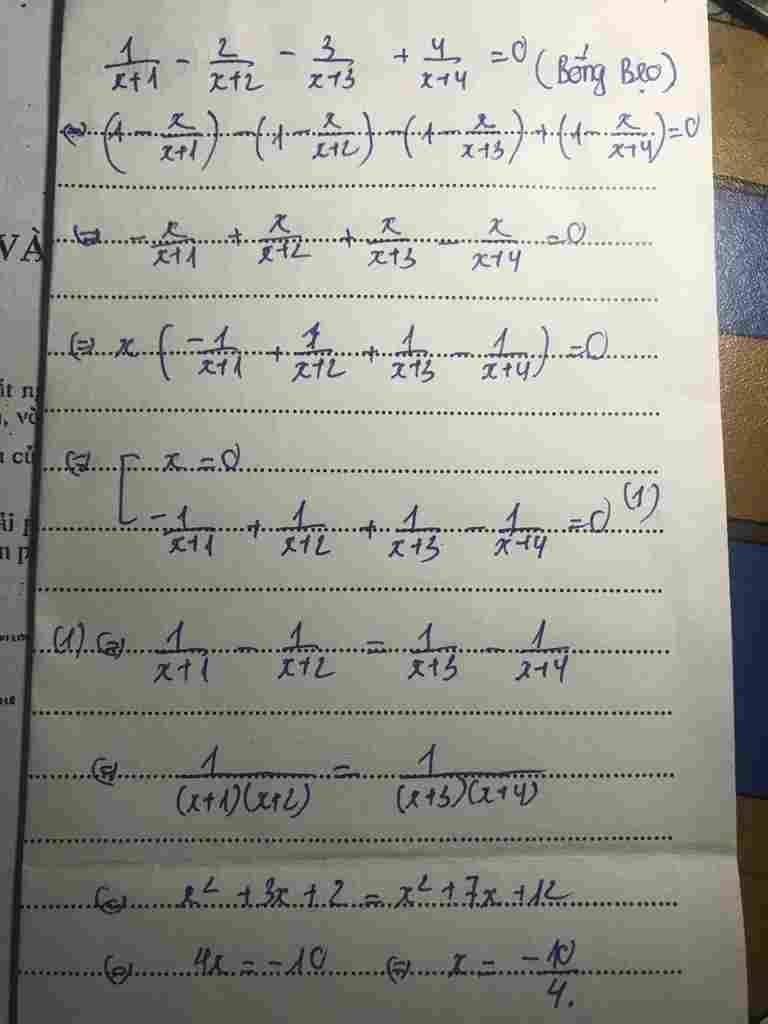 1/(x+1) - 2/(x+2) - 3/(x+3) + 4/(x+4) = 0 (Bống Bẹo)
⇔ (1 - x/(x+1)) - (1 - x/(x+2)) - (1 - x/(x+3)) + (1 - x/(x+4)) = 0
⇔ -x/(x+1) + x/(x+2) + x/(x+3) - x/(x+4) = 0
VÀ
⇔ x (-1/(x+1) + 1/(x+2) + 1/(x+3) - 1/(x+4)) = 0
⇔ [ x = 0
-1/(x+1) + 1/(x+2) + 1/(x+3) - 1/(x+4) = 0 (1)
(1) ⇔ 1/(x+1) - 1/(x+2) = 1/(x+3) - 1/(x+4)
⇔ 1/((x+1)(x+2)) = 1/((x+3)(x+4))
⇔ x² + 3x + 2 = x² + 7x + 12
⇔ 4x = -10 ⇔ x = -10/4.